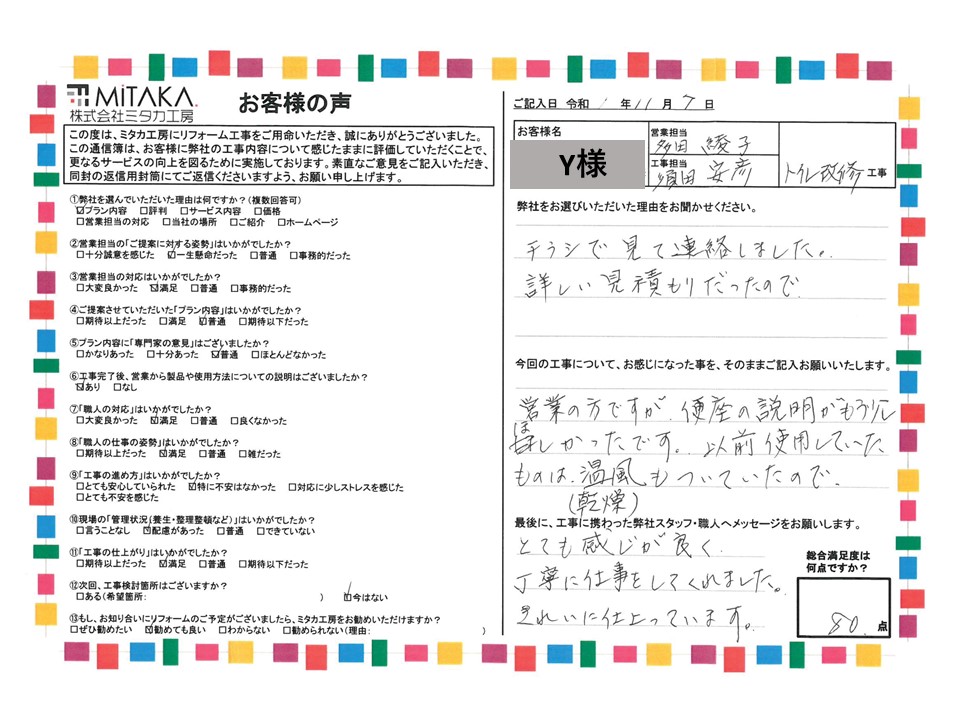 MiTAKA.
株式会社ミタカ工房
お客様の声
この度は、ミタカ工房にリフォーム工事をご用命いただき、誠にありがとうございました。
この通信簿は、お客様に弊社の工事内容について感じたままに評価していただくことで、
更なるサービスの向上を図るために実施しております。素直なご意見をご記入いただき、
同封の返信用封筒にてご返信くださいますよう、お願い申し上げます。
①弊社を選んでいただいた理由は何ですか?(複数回答可)
☑プラン内容 □評判 □サービス内容 □価格
□営業担当の対応 □当社の場所 □ご紹介 □ホームページ
②営業担当の「ご提案に対する姿勢」はいかがでしたか?
□十分誠意を感じた ☑一生懸命だった □普通 □事務的だった
③営業担当の対応はいかがでしたか?
□大変良かった ☑満足 □普通 □事務的だった
④ご提案させていただいた「プラン内容」はいかがでしたか?
□期待以上だった □満足 ☑普通 □期待以下だった
⑤プラン内容に「専門家の意見」はございましたか?
□かなりあった □十分あった ☑普通 □ほとんどなかった
⑥工事完了後、営業から製品や使用方法についての説明はございましたか?
☑あり □なし
⑦「職人の対応」はいかがでしたか?
□大変良かった ☑満足 □普通 □良くなかった
⑧「職人の仕事の姿勢」はいかがでしたか?
□期待以上だった ☑満足 □普通 □雑だった
⑨「工事の進め方」はいかがでしたか?
□とても安心していられた ☑特に不安はなかった □対応に少しストレスを感じた
□とても不安を感じた
⑩現場の「管理状況(養生・整理整頓など)」はいかがでしたか?
□言うことなし ☑配慮があった □普通 □できていない
⑪「工事の仕上がり」はいかがでしたか?
□期待以上だった ☑満足 □普通 □期待以下だった
⑫次回、工事検討箇所はございますか?
□ある(希望箇所: ) ☑今はない
⑬もし、お知り合いにリフォームのご予定がございましたら、ミタカ工房をお勧めいただけますか?
□ぜひ勧めたい ☑勧めても良い □わからない □勧められない(理由: )
ご記入日 令和 1 年 11 月 7 日
お客様名
Y様
営業担当
多田 綾子
工事担当
須田 安彦
トイレ改修 工事
弊社をお選びいただいた理由をお聞かせください。
チラシで見て連絡しました。
詳しい見積もりだったので
今回の工事について、お感じになった事を、そのままご記入お願いいたします。
営業の方ですが、便座の説明がもう少し
ほしかったです。以前使用していた
ものは、温風もついていたので、
(乾燥)
最後に、工事に携わった弊社スタッフ・職人へメッセージをお願いします。
とても感じが良く、
丁寧に仕事をしてくれました。
きれいに仕上っています。
総合満足度は
何点ですか?
80. 点